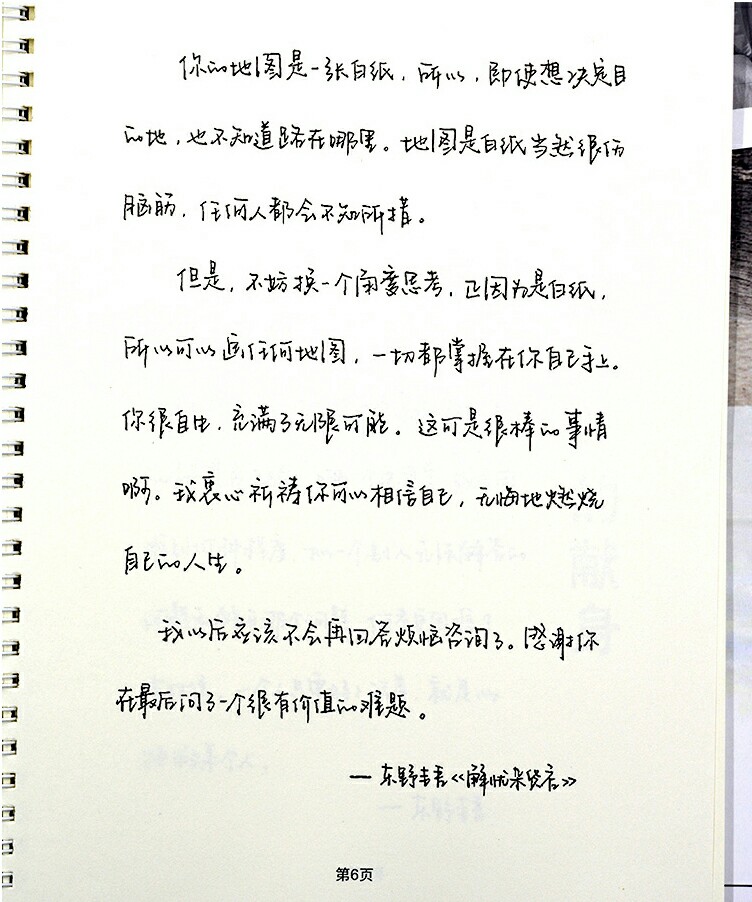 你的地图是一张白纸，所以，即使想决定目
的地，也不知道路在哪里。地图是白纸当然很伤
脑筋，任何人都会不知所措。
但是，不妨换一个角度思考，正因为是白纸，
所以可以画任何地图，一切都掌握在你自己手上。
你很自由，充满了无限可能。这可是很棒的事情
啊。我衷心祈祷你可以相信自己，无悔地燃烧
自己的人生。
我以后应该不会再回答烦恼咨询了。感谢你
在最后问了一个很有价值的难题。
— 东野圭吾《解忧杂货店》
第6页